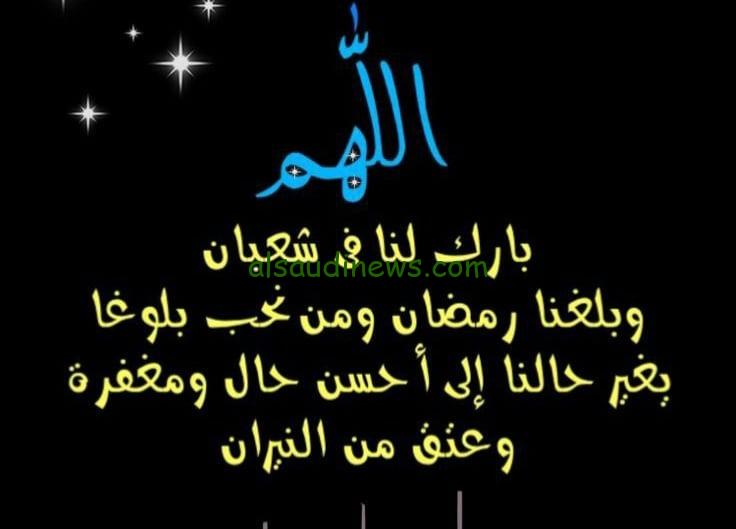 اللهم
بارك لنا في شعبان
alsaudinews.com
وبلغنا رمضان ومن نحب بلوغا
يغير حالنا إلى أحسن حال ومغفرة
وعتق من النيران